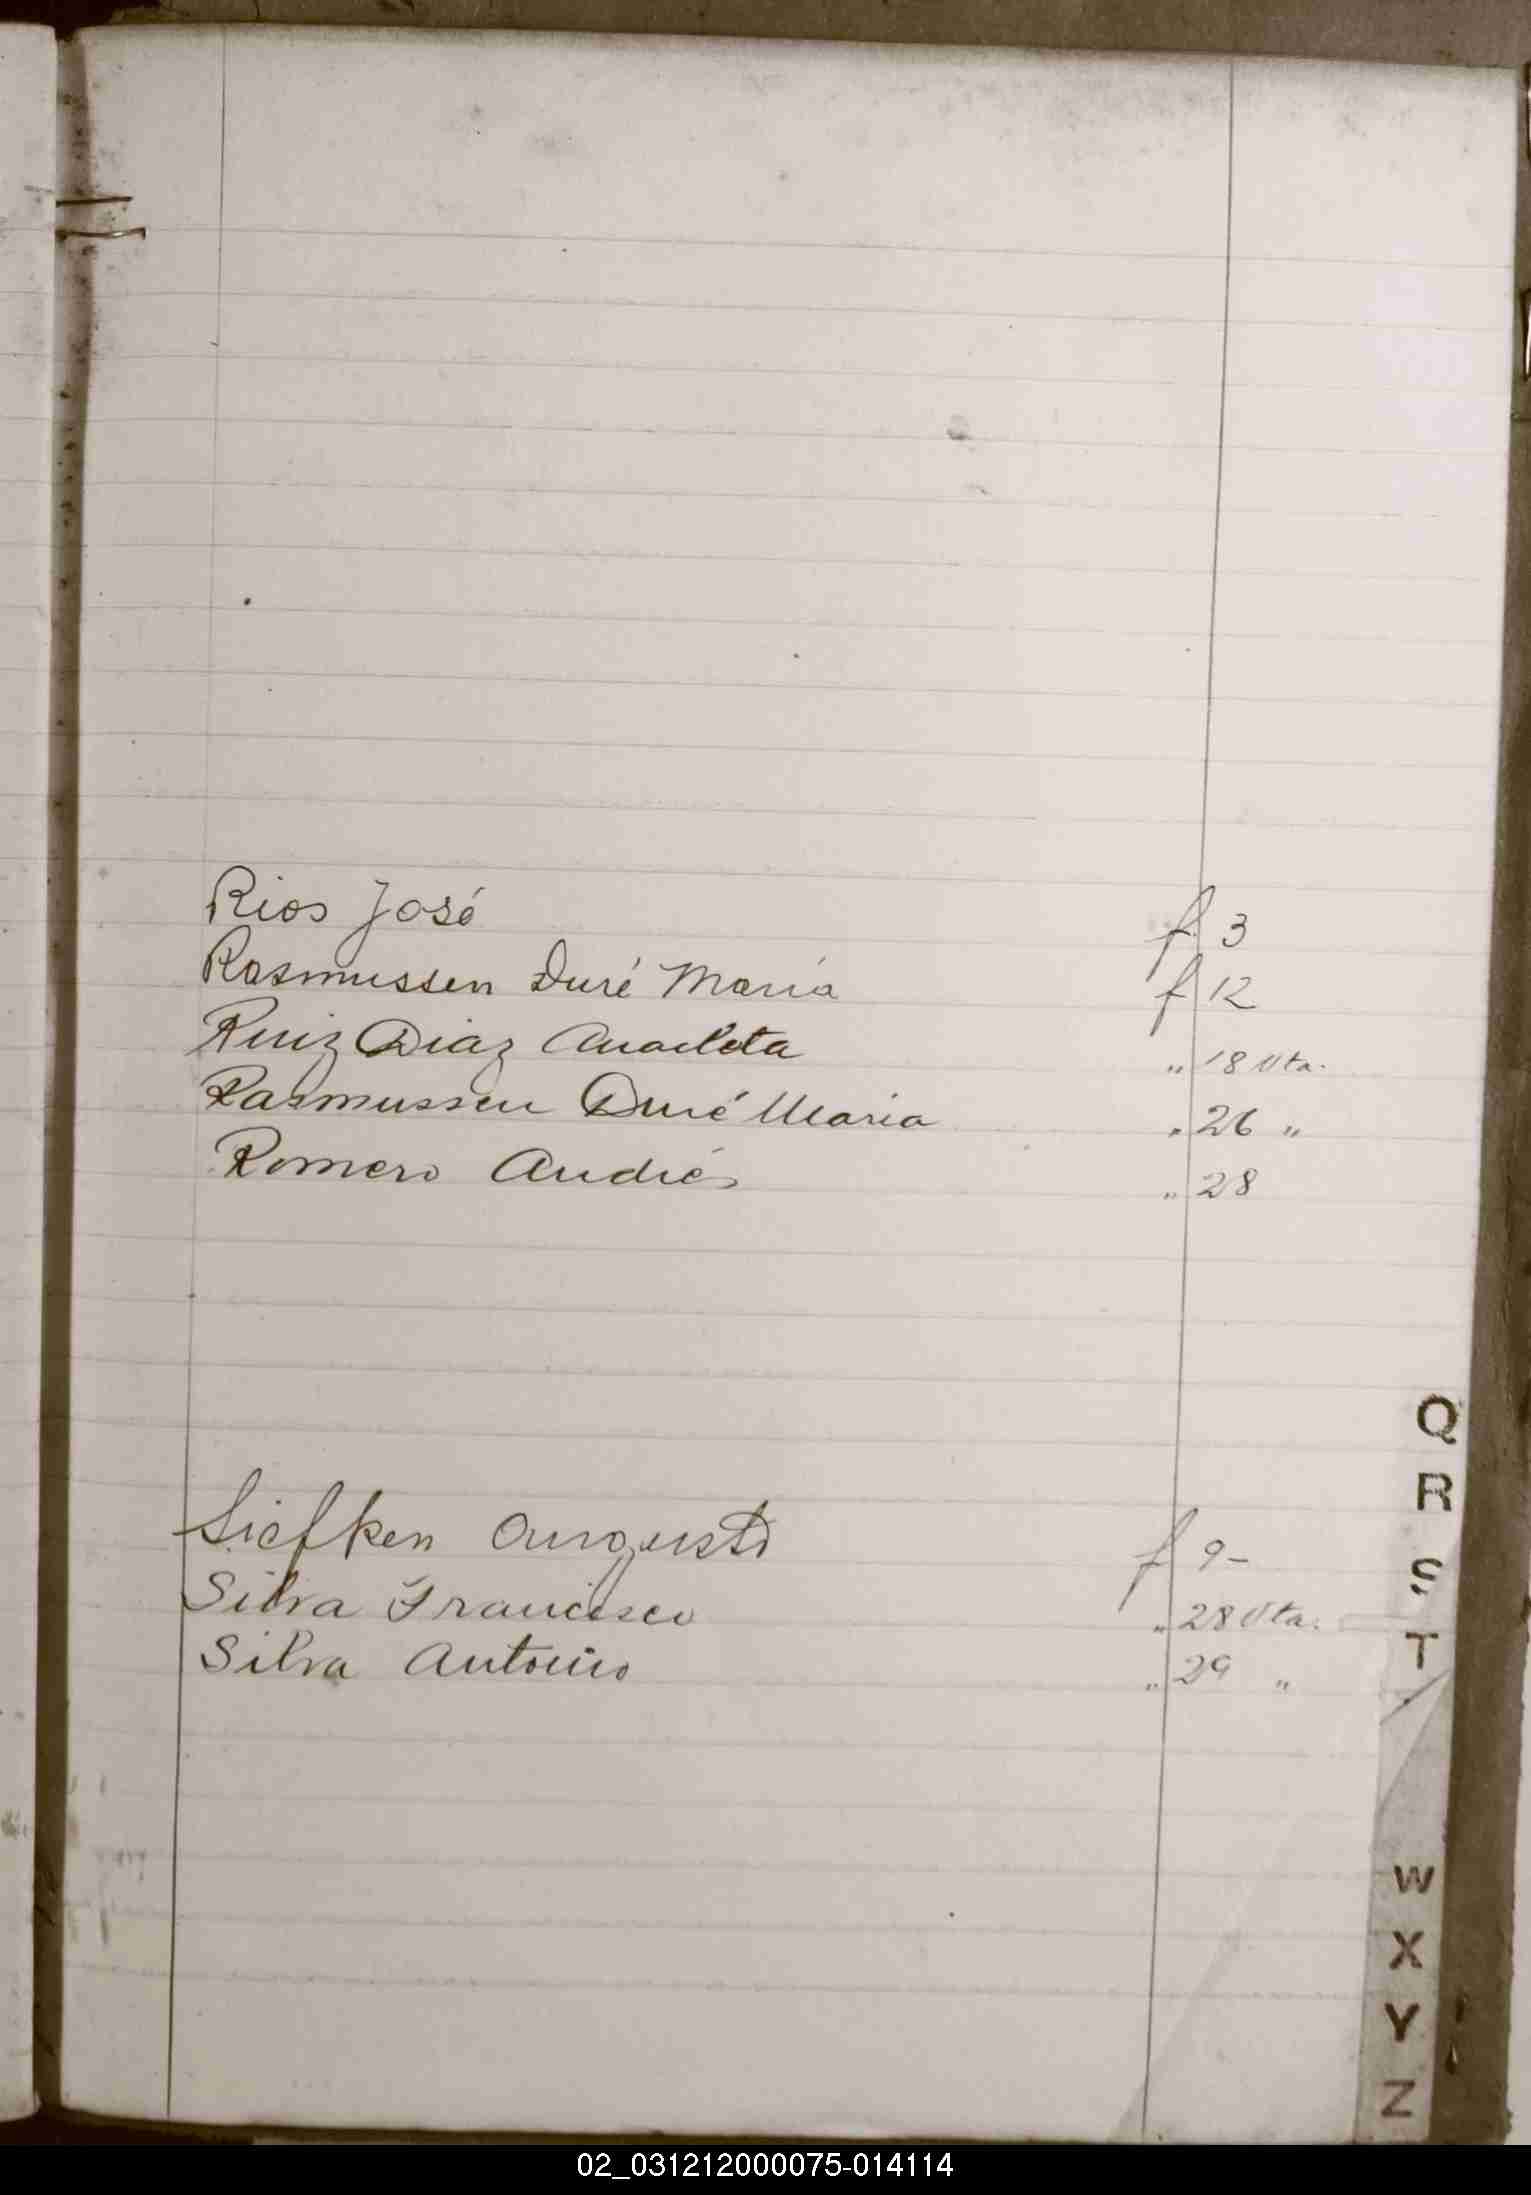 Rios José f. 3
Rasmussen Duré Maria f 12
Ruiz Diaz Anacleta „ 18 Vta.
Rasmussen Duré Maria „ 26 „
Romero Andrés „ 28
Siefken Augusto f 9-
Silva Francisco „ 28 Vta.
Silva Antonio „ 29 „
Q
R
S
T
W
X
Y
Z
02_031212000075-014114